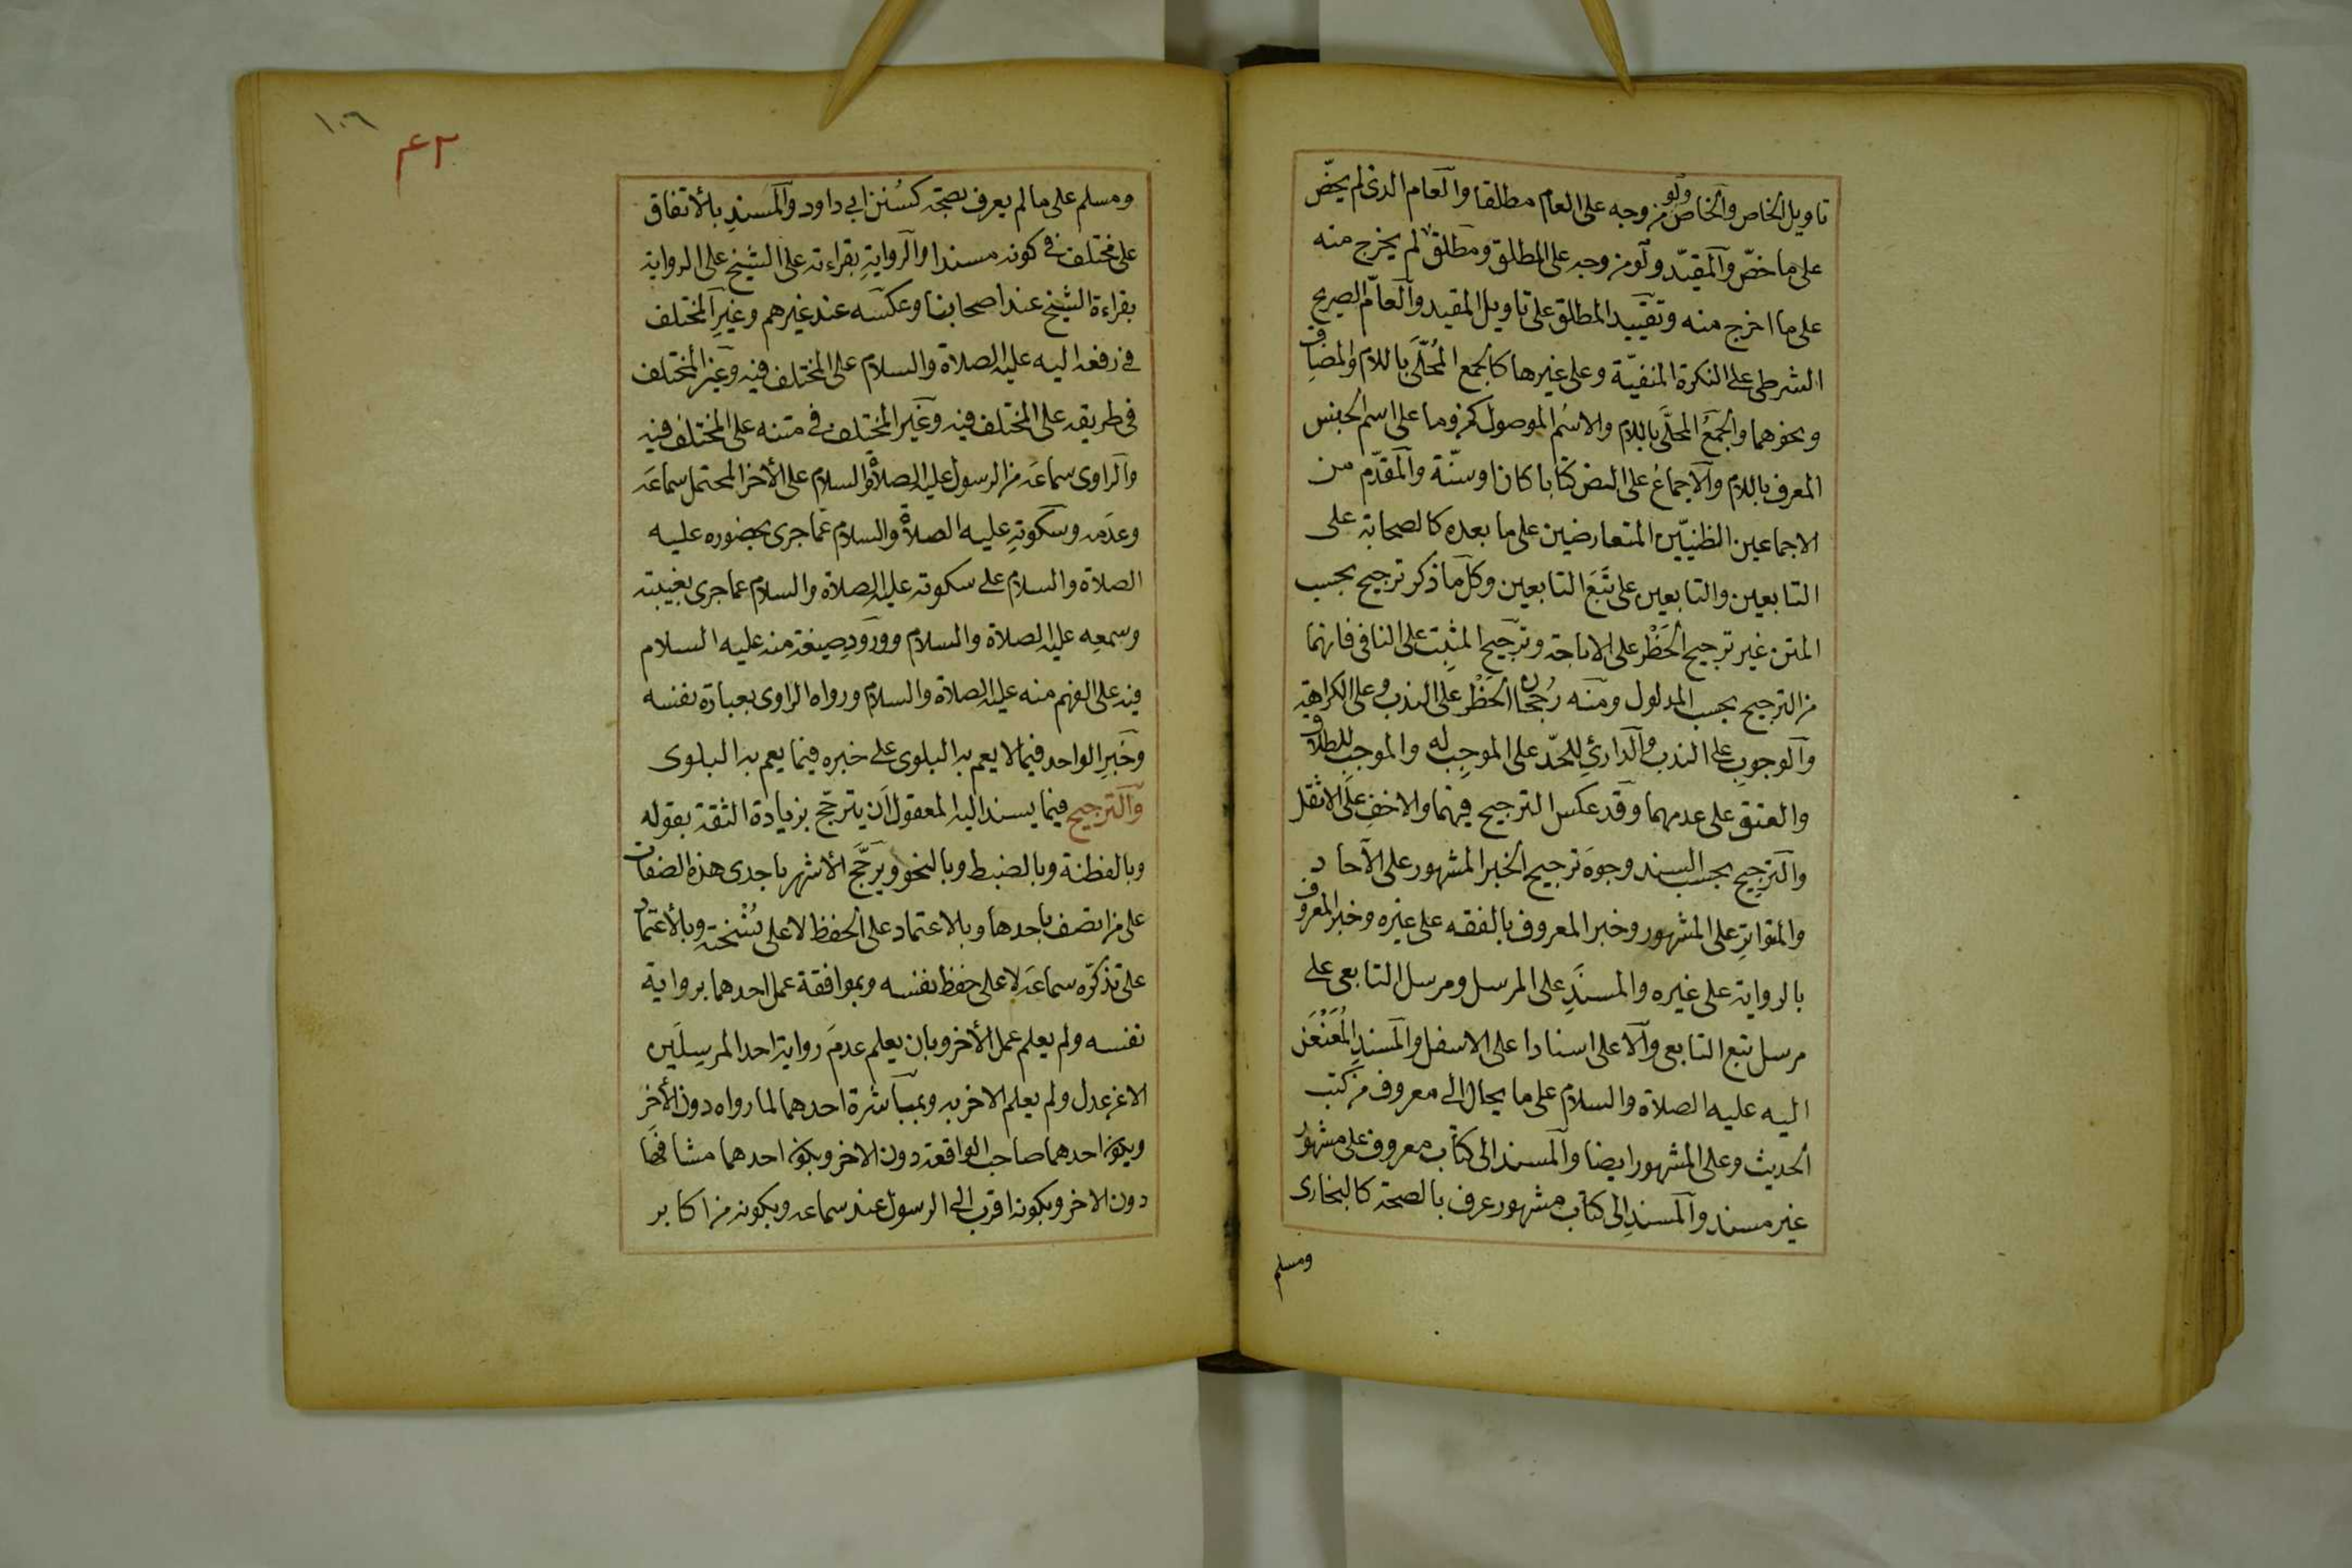 تاويل الخاص والخاص ولو من وجه على العام مطلقا والعام الذى لم يخصّ
على ما خصّ والمقيّد ولو من وجه على المطلق ومطلق لم يخرج منه
على ما اخرج منه وتقييد المطلق على تاويل المقيد والعامّ الصريح
الشرطى على النكرة المنفيّة وعلى غيرها كالجمع المُحلّى باللام والمضاف
ونحوهما والجمعُ المحلَّى باللام والاسمُ الموصول كمن وما على اسم الجنس
المعرف باللام والاجماعُ على النص كتابا كان او سنّة والمقدّم من
الاجماعين الظنيّين المتعارضين على ما بعده كالصحابة على
التابعين والتابعين على تَبَع التابعين وكل ما ذكر ترجيح بحسب
المتن غير ترجيح الحَظْر على الاباحة وترجيح المثبِت على النافى فانهما
من الترجيح بحسب المدلول ومنه رُجحان الحَظْر على الندب وعلى الكراهة
والوجوبِ على الندب والدارئ للحدّ على الموجِب له والموجب للطلاق
والعتق على عدمهما وقد عكس الترجيح فيهما والاخفِ على الاثقل
والترجيح بحسب السند وجوهَ ترجيح الخبر المشهور على الآحاد
والمتواترِ على المشهور وخبر المعروف بالفقه على غيره وخبر المعروف
بالرواية على غيره والمسنَدِ على المرسل ومرسل التابعى على
مرسل تبع التابعى والاعلى اسنادا على الاسفل والمسندِ المُعَنْعَن
اليه عليه الصلاة والسلام على ما يحال الى معروف من كتب
الحديث وعلى المشهور ايضا والمسند الى كتاب معروف على مشهور
غير مسند والمسندِ الى كتاب مشهور عرف بالصحة كالبخارى
ومسلم
١٠٦
٤٢
ومسلم على ما لم يعرف بصحته كسُنن ابى داود والمسندِ بالأتفاق
على مختلف فى كونه مسندا والروايةِ بقراءته على الشيخ على الرواية
بقراءة الشيخ عند اصحابنا وعكسه عند غيرهم وغيرِ المختلف
فى رفعه اليه عليه الصلاة والسلام على المختلف فيه وغير المختلف
فى طريقه على المختلف فيه وغير المختلف فى متنه على المختلف فيه
والراوى سماعَه من الرسول عليه الصلاة والسلام على الأخر المحتمل سماعَه
وعدمه وسكوتِه عليه الصلاة والسلام عما جرى بحضوره عليه
الصلاة والسلام على سكوته عليه الصلاة والسلام عما جرى بغيبته
وسمعِه عليه الصلاة والسلام وورودِ صيغة منه عليه السلام
فيه على الفهم منه عليه الصلاة والسلام ورواه الراوى بعبارة نفسه
وخبرِ الواحد فيما لا يعم به البلوى على خبره فيما يعم به البلوى
والترجيح فيما يسند اليه المعقول أن يترجّح بزيادة الثقة بقوله
وبالفطنة وبالضبط وبالنحو ويرجَّح الأشهر باحدى هذه الصفات
على من اتصف باحدها وبالاعتماد على الحفظ لا على نُسْخته وبالأعتماد
على تذكّره سماعَه لا على خط نفسه وبموافقة عمل احدهما برواية
نفسه ولم يعلم عمل الأخر وبان يعلم عدمَ رواية احد المرسِلَين
الا عن عدل ولم يعلم الاخر به وبمباشرة احدهما لما رواه دون الأخر
وبكون احدهما صاحب الواقعة دون الاخر وبكون احدهما مشافها
دون الاخر وبكونه اقرب الى الرسول عند سماعه وبكونه من اكابر